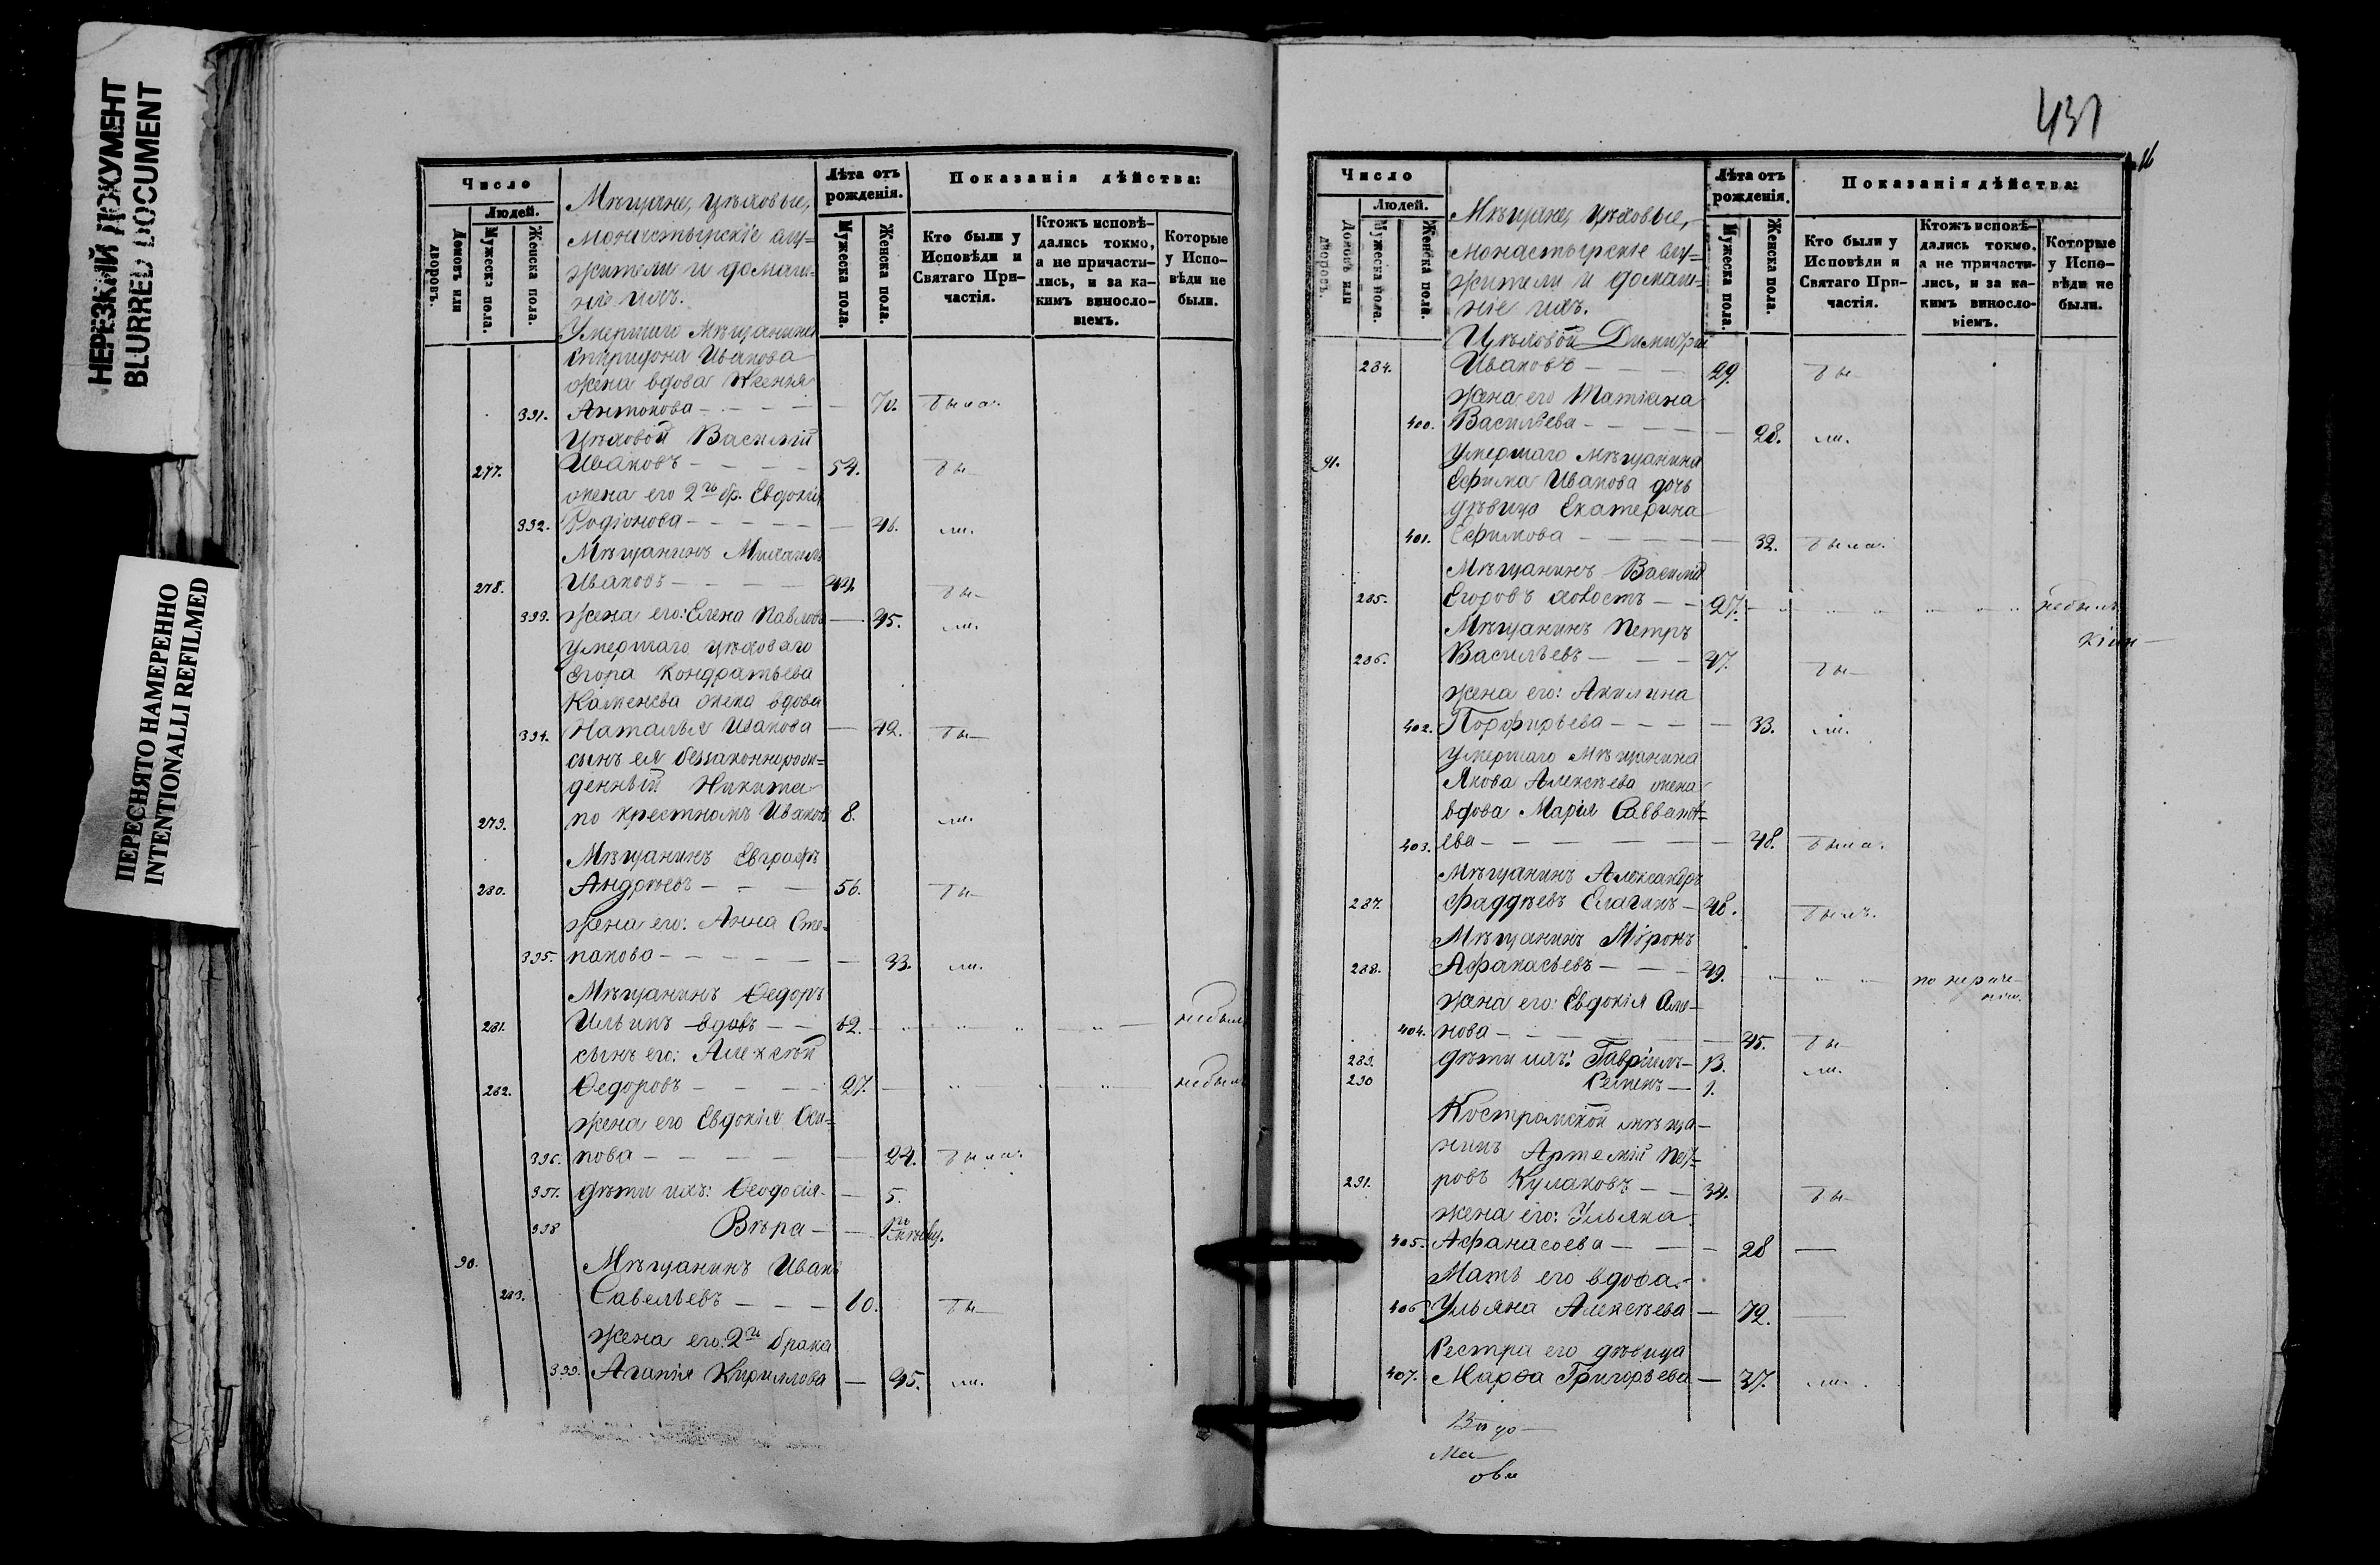 НЕРЕЗКИЙ ДОКУМЕНТ
BLURRED DOCUMENT
ПЕРЕСНЯТО НАМЕРЕННО
INTENTIONALLI REFILMED
Число
Людей.
Домовъ или дворовъ.
Мужеска пола.
Женска пола.
Мѣщане, цѣховые,
монастырскіе слу=
жители и домаш-
ніе ихъ.
Лѣта отъ рожденія.
Мужеска пола.
Женска пола.
Показанія дѣйства:
Кто были у Исповѣди и Святаго Причастія.
Ктожъ исповѣдались токмо, а не причастились, и за какимъ винословіемъ.
Которые у Исповѣди не были.
Умершаго мѣщанина
Спиридона Иванова
жена вдова
391. Антонова — 70. была.
Цѣховой Василій
277. Ивановъ — 54. бы—
жена его 2го бр. Евдокія
392. Родіонова — 46. ли.
Мѣщанинъ Михаилъ
278. Ивановъ — 44. бы—
393. жена его: Елена Павлова — 45. ли.
Умершаго цѣховаго
Егора Кондратьева
Каменева жена вдова
394. Наталья Иванова — 42. бы—
сынъ ея беззаконнорож=
денный Никита
279. по крестномъ Ивановъ 8. ли.
Мѣщанинъ Евграфъ
280. Андреевъ — 56. бы—
жена его: Анна Сте-
395. панова — 33. ли.
Мѣщанинъ Ѳедоръ
281. Ильинъ вдовъ — 62. небылъ
сынъ его: Алексѣй
282. Ѳедоровъ — 27. небылъ
жена его Евдокія Оси=
396. пова — 24. была.
397. дѣти ихъ: Ѳеодосія — 5.
398 Вѣра —
90. Мѣщанинъ Иванъ
283. Савельевъ — 60. бы—
жена его: 2го брака
399. Агапія Кириллова — 45. ли.
431
Число
Людей.
Домовъ или дворовъ.
Мужеска пола.
Женска пола.
Мѣщане, цѣховые,
монастырскіе слу=
жители и домаш-
ніе ихъ.
Лѣта отъ рожденія.
Мужеска пола.
Женска пола.
Показанія дѣйства:
Кто были у Исповѣди и Святаго Причастія.
Ктожъ исповѣдались токмо, а не причастились, и за какимъ винословіемъ.
Которые у Исповѣди не были.
Цѣховой Димитрій
284. Ивановъ — 29. бы—
жена его Татіана
400. Васильева — 28. ли.
91. Умершаго мѣщанина
Ефима Иванова дочь
дѣвица Екатерина
401. Ефимова — 32. была.
Мѣщанинъ Василій
285. Егоровъ холостъ — 27. небылъ
Мѣщанинъ Петръ
286. Васильевъ — 47. бы—
жена его: Акилина
402. Порфирьева — 33. ли.
Умершаго мѣщанина
Якова Алексѣева жена
вдова Марія Савват=
403. ева — 48. была.
Мѣщанинъ Александръ
287. Фаддѣевъ Елагинъ — 48. былъ.
Мѣщанинъ Миронъ
288. Афанасьевъ — 49.
жена его: Евдокія
404. нова — 45. бы
289. дѣти ихъ: Гавріилъ — 13. ли.
290 Семенъ — 1.
Костромской мѣща-
нинъ Артемій Пет=
291. ровъ Кулаковъ — 34. бы—
жена его: Ульяна
405. Афанасьева — 28 —
Мать его вдова
406 Ульяна Алексѣева — 72. —
Сестра его дѣвица
407. Марфа Григорьева — 37. ли.